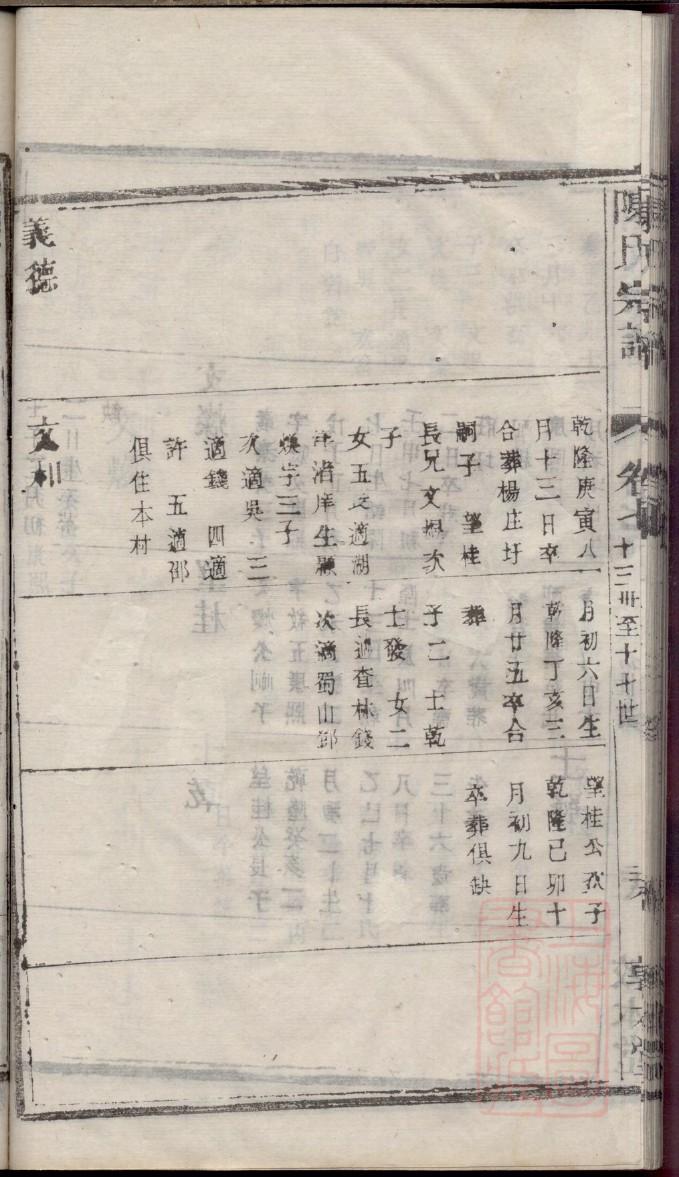 陳氏宗譜
卷七
十三世至十七世
乾隆庚寅八
月十三日卒
合葬楊庄圩
嗣子 望桂
長兄文煜次
子
女五長適湖
洋渚岸生顯
煥字三子
次適吳 三
適錢 四適
許 五適邵
俱住本村
月初六日生
乾隆丁亥三
月廿五卒合
葬
子二士乾
士發 女二
長適查林錢
次適蜀山邵
望桂公次子
乾隆己卯十
月初九日生
卒葬俱缺
義德
文